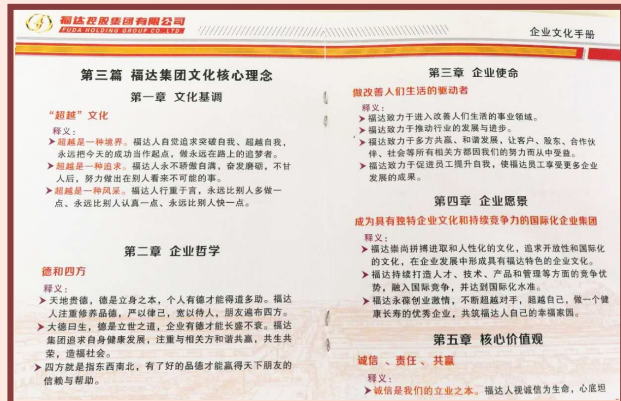 福达控股集团有限公司
FUDA HOLDING GROUP CO.,LTD
企业文化手册
第三篇 福达集团文化核心理念
第一章 文化基调
“超越”文化
释义:
超越是一种境界。福达人自觉追求突破自我、超越自我,
永远把今天的成功当作起点,做永远在路上的追梦者。
超越是一种追求。福达人永不骄傲自满,奋发磨砺,不甘
人后,努力做出在别人看来不可能的事。
超越是一种风采。福达人行重于言,永远比别人多做一
点、永远比别人认真一点、永远比别人快一点。
第二章 企业哲学
德和四方
释义:
天地贵德,德是立身之本,个人有德才能得道多助。福达
人注重修养品德,严以律己,宽以待人,朋友遍布四方。
大德曰生,德是立世之道,企业有德才能长盛不衰。福达
集团追求自身健康发展,注重与相关方和谐共赢,共生共
荣,造福社会。
四方就是指东西南北,有了好的品德才能赢得天下朋友的
信赖与帮助。
第三章 企业使命
做改善人们生活的驱动者
释义:
福达致力于进入改善人们生活的事业领域。
福达致力于推动行业的发展与进步。
福达致力于多方共赢、和谐发展,让客户、股东、合作伙
伴、社会等所有相关方都因我们的努力而从中受益。
福达致力于促进员工提升自我,使福达员工享受更多企业
发展的成果。
第四章 企业愿景
成为具有独特企业文化和持续竞争力的国际化企业集团
释义:
福达崇尚拼搏进取和人性化的文化,追求开放性和国际化
的文化,在企业发展中形成具有福达特色的企业文化。
福达持续打造人才、技术、产品和管理等方面的竞争优
势,融入国际竞争,并达到国际化水准。
福达永葆创业激情,不断超越对手,超越自己,做一个健
康长寿的优秀企业,共筑福达人自己的幸福家园。
第五章 核心价值观
诚信 、责任 、共赢
释义:
诚信是我们的立业之本。福达人视诚信为生命,心底坦